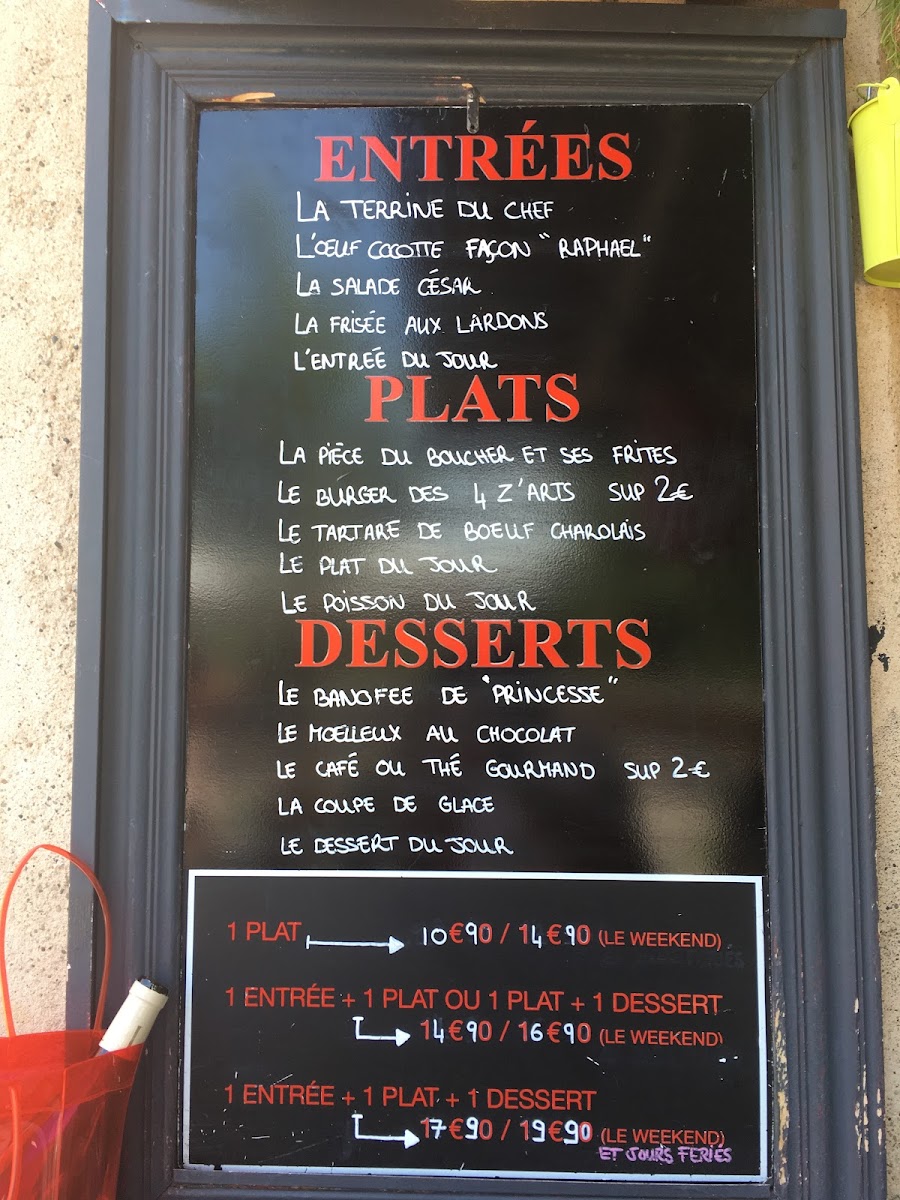 ENTRÉES
LA TERRINE DU CHEF
L'ŒUF COCOTTE FAÇON "RAPHAEL"
LA SALADE CÉSAR
LA FRISÉE AUX LARDONS
L'ENTRÉE DU JOUR
PLATS
LA PIÈCE DU BOUCHER ET SES FRITES
LE BURGER DES 4 Z'ARTS SUP 2€
LE TARTARE DE BOEUF CHAROLAIS
LE PLAT DU JOUR
LE POISSON DU JOUR
DESSERTS
LE BANOFEE DE "PRINCESSE"
LE MOELLEUX AU CHOCOLAT
LE CAFÉ OU THÉ GOURMAND SUP 2€
LA COUPE DE GLACE
LE DESSERT DU JOUR
1 PLAT 10€90 / 14€90 (LE WEEKEND)
1 ENTRÉE + 1 PLAT OU 1 PLAT + 1 DESSERT
14€90 / 16€90 (LE WEEKEND)
1 ENTRÉE + 1 PLAT + 1 DESSERT
17€90 / 19€90 (LE WEEKEND)
ET JOURS FERIÉS